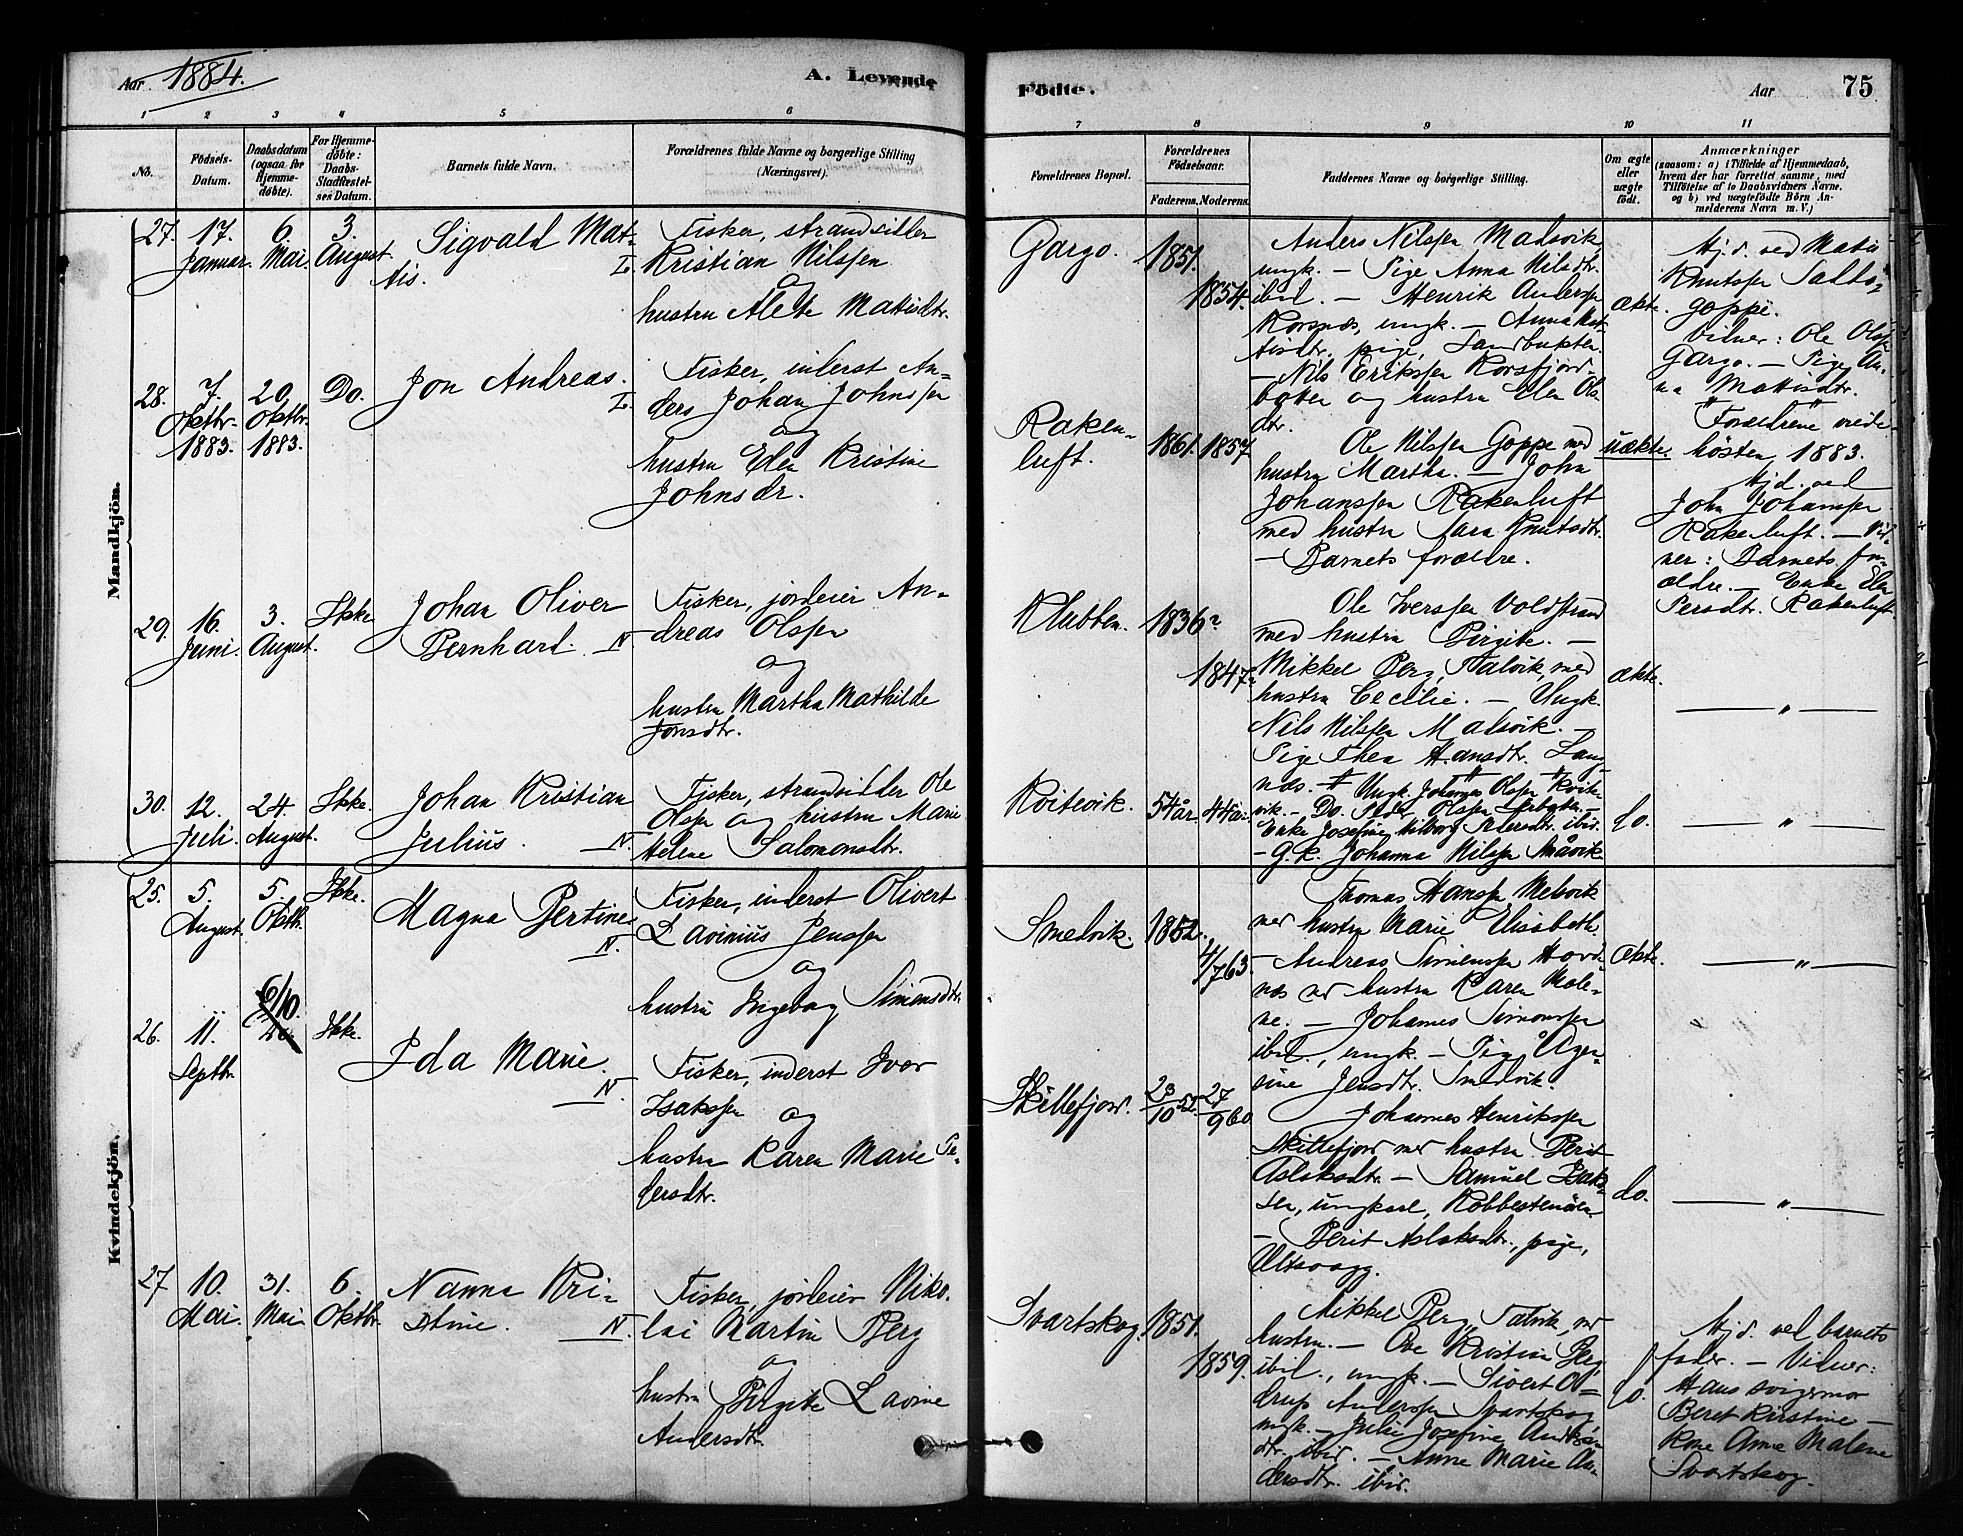 Aar 1884.
A. Levende
Födte.
Aar
75
1
2
3
4
5
6
7
8
9
10
11
No.
Födsels-
Datum.
Daabsdatum
(ogsaa for
Hjemme-
døbte).
For Hjemme-
døbte:
Daabs-
Stadfæstel-
ses Datum.
Barnets fulde Navn.
Forældrenes fulde Navne og borgerlige Stilling
(Næringsvei).
Forældrenes Bopæl.
Forældrenes
Födselsaar.
Faderens. Moderens.
Faddernes Navne og borgerlige Stilling.
Om ægte
eller
uægte
födt.
Anmærkninger
(saasom: a) i Tilfælde af Hjemmedaab,
hvem der har forrettet samme, med
Tilföielse af to Daabsvidners Navne,
og b) ved uægtefödte Börn An-
melderens Navn m. V.)
Mandkjön.
27. 17. Januar. 6. Mai. 3. August.
Sigvald Mat-
tis. L.
Fisker, strandsidder
Kristian Nilssen
og
hustru Alete Mattisdtr.
Gargo. 1851. 1854.
Anders Nilssen Madsvik,
ungk. — Pige Anna Nilsdtr.
ibid. — Henrik Anderssen
Korsnæs, ungk. — Anna Mat-
tisdtr. pige, Sandbukten.
— Nils Erikssen Korsfjord-
botten og hustru Elen Ols-
dtr.
ækte.
Hjd. ved Mattis
Knutssen Saltto,
goppi.
Vidner: Ole Olssen
Gargo. — Pige An-
na Mattisdtr.
28. 7. Oktbr. 1883. 20. Oktbr. 1883. Do.
Jon Andreas. L.
Fisker, inderst An-
ders Johan Johnssen
og
hustru Elen Kristine
Johnsdr.
Raken-
luft.
1861. 1857
Ole Nilssen Goppe med
hustru Martha. — John
Johanssen Rakenluft
med hustru Sara Knutsdtr.
— Barnets forældre.
uækte.
Forældrene viede
hösten 1883.
Hjd. ved
John Johanssen
Rakenluft. — Vid-
ner: Barnets for-
ældre. — Enke Elen
Persdtr. Rakenluft.
29. 16. Juni. 3. August. Ikke
Johan Oliver
Bernhard. N
Fisker, jordeier An-
dreas Olssen
og
hustru Martha Mathilde
Jonsdtr.
Klubben. 1836? 1847?
Ole Iverssen Voldstrand
med hustru Birgite. —
Mikkel Berg, Talvik, med
hustru Cecilie. — Ungk.
Nils Nilssen Malsvik. —
Pige Thea Hansdtr. Lang-
næs.
ækte.
— „ —
30. 12. Juli. 24. August. Ikke.
Johan Kristian
Julius. N
Fisker, strandsidder Ole
Olssen og hustru Marie
Helene Salomonsdtr.
Kvitvik. 54 år. 44 år.
Ungk. Johannes Olssen Kvite-
vik. — Do. Peder Olssen
Enke Josefine Petersdtr. ibid.
— G. k. Johanna Nilssen
do.
— „ —
Kvindekjön.
25. 5. August. 5. Oktb. Ikke.
Magna Bertine N.
Fisker, inderst Olivert
Lavinius Jenssen
og
hustru Ingeborg Simonsdtr.
Smedvik. 1852. 4/7 63.
Thomas Hanssen Melsvik
med hustru Marie Elisabeth.
— Andreas Simonssen Hovd-
næs med hustru Karen Male-
ne. — Johannes Simonssen
ibid., ungk. — Pige Åger-
sine Jensdtr. Smedvik.
ækte.
— „ —
26. 11. Septbr. 6/10. Ikke.
Ida Marie. N
Fisker, inderst Iver
Isakssen og
hustru Karen Marie Pe-
dersdtr.
Skillefjord. 23/10 52. 27/9 60
Johannes Henrikssen
Skillefjord med hustru Berit
Aslaksdtr. — Samuel Isaks-
sen, ungkarl, Kobbestenöien.
— Berit Aslaksdtr., pige,
Altsvagg.
do.
— „ —
27 10. Mai. 31. Mai. 6. Oktbr.
Nanna Kri-
stine. N.
Fisker, jordeier Niko-
lai Martin Berg
og
hustru Birgite Lavine
Andersdtr.
Svartskog 1851. 1859.
Mikkel Berg, Talvik, med
hustru. — Ove Kristian Berg
ibid., ungk. — Sivert O-
drup Anderssen Svartskog,
ungk. — Julie Josefine Anders-
dtr. ibid. — Anne Marie An-
dersdtr. ibid.
do.
Hjd. ved barnets
fader. — Vidner:
Hans svigermor
Beret Kirstine —
Kone Anne Malene
Svartskog.